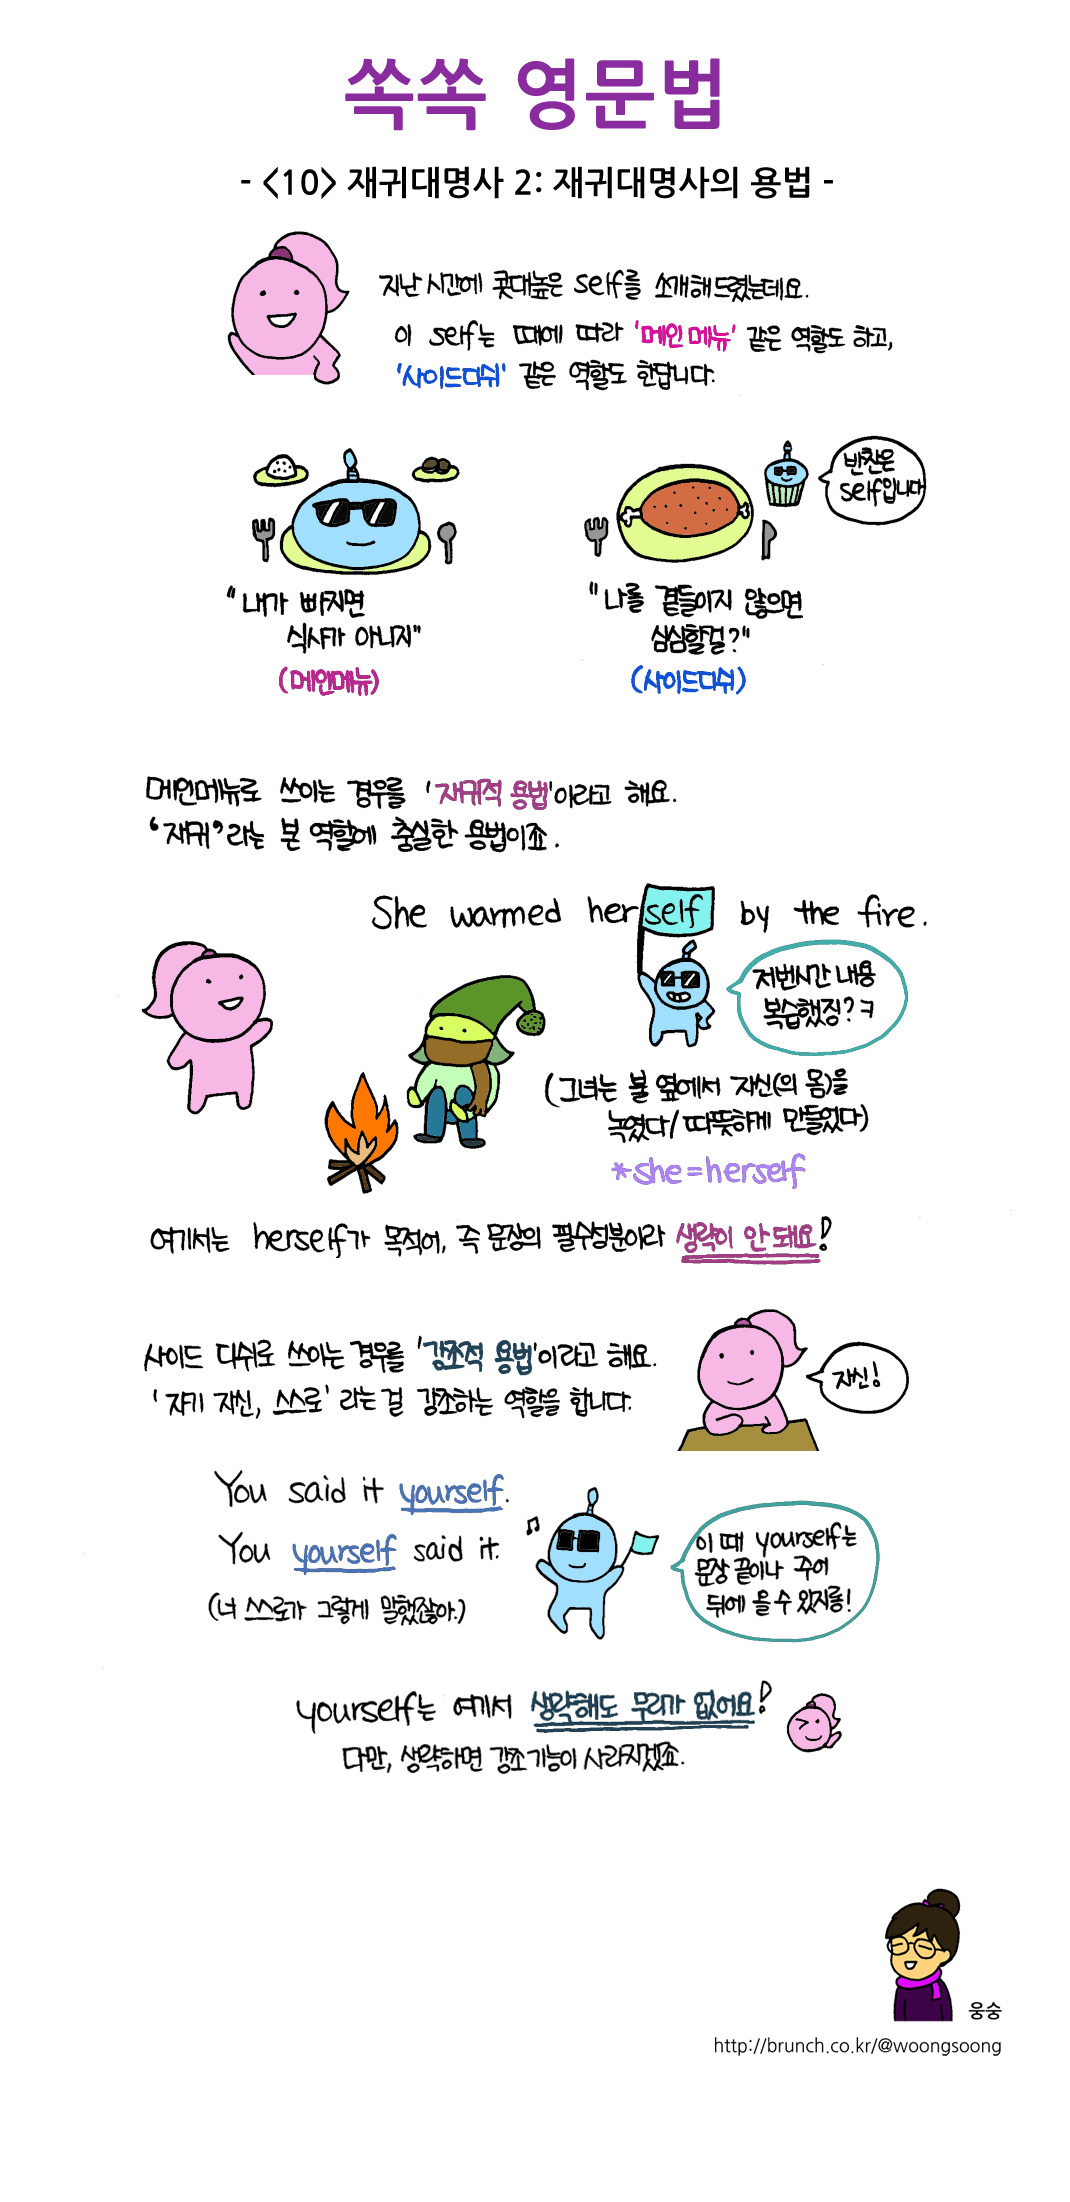 쏙쏙 영문법
- <10> 재귀대명사 2: 재귀대명사의 용법 -
지난 시간에 콧대높은 self를 소개해드렸는데요.
이 self는 때에 따라 '메인 메뉴' 같은 역할도 하고,
'사이드디쉬' 같은 역할도 한답니다.
반찬은
self입니다
"내가 빠지면
식사가 아니지"
(메인메뉴)
"나를 곁들이지 않으면
심심할걸?"
(사이드디쉬)
메인메뉴로 쓰이는 경우를 '재귀적 용법'이라고 해요.
'재귀'라는 본 역할에 충실한 용법이죠.
She warmed herself by the fire.
저번시간 내용
복습했징?ㅋ
(그녀는 불 옆에서 자신(의 몸)을
녹였다/따뜻하게 만들었다)
*she=herself
여기서는 herself가 목적어, 즉 문장의 필수성분이라 생략이 안 돼요!
사이드 디쉬로 쓰이는 경우를 '강조적 용법'이라고 해요.
'자기 자신, 스스로'라는 걸 강조하는 역할을 합니다.
자신!
You said it yourself.
You yourself said it.
(너 스스로가 그렇게 말했잖아.)
이 때 yourself는
문장 끝이나 주어
뒤에 올 수 있지롱!
yourself는 여기서 생략해도 무리가 없어요!
다만, 생략하면 강조기능이 사라지겠죠.
웅숭
http://brunch.co.kr/@woongsoong